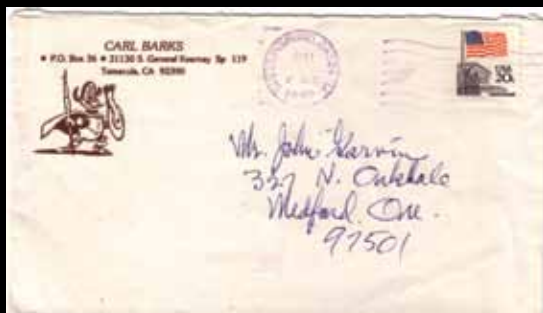 CARL BARKS
• P.O. Box 36 • 31130 S. General Kearney Sp 119
Temecula, CA 92390
USA
20c
Mr. John Garvin
327 N. Oakdale
Medford Ore.
97501